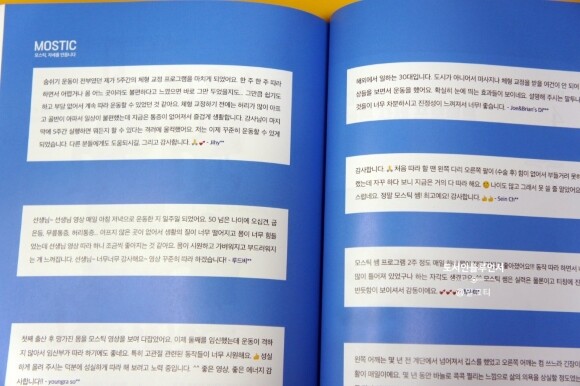 MOSTIC
모스틱, 자세를 만듭니다
숨쉬기 운동이 전부였던 제가 5주간의 체형 교정 프로그램을 마치게 되었어요. 한 주 한 주 따라
하면서 어렵거나 몸 어느 곳이라도 불편하다고 느꼈으면 바로 그만 두었을지도, 그만큼 쉽기도
하고 부담 없어서 계속 따라 운동할 수 있었던 것 같아요. 체형 교정하기 전에는 허리가 많이 아프고
골반이 아파서 일상이 불편했는데 지금은 통증이 없어져서 즐겁게 생활합니다. 강사님이 마지
막에 5주간 실행하면 뭐든지 할 수 있다는 격려에 울컥했어요. 저는 이제 꾸준히 운동할 수 있게
되었습니다. 다른 분들에게도 도움되시길, 그리고 감사합니다. 🙏💕 - Jihy**
선생님~ 선생님 영상 매일 아침 저녁으로 운동한 지 일주일 되었어요. 50 넘은 나이에 오십견, 굽
은등, 무릎통증, 허리통증.. 아프지 않은 곳이 없어서 생활의 질이 너무 떨어지고 몸이 너무 힘들
었는데 선생님 영상 따라 하니 조금씩 좋아지는 것 같아요. 몸이 시원하고 가벼워지고 부드러워지
는 게 느껴집니다. 선생님~ 너무너무 감사해요~ 영상 꾸준히 따라 하겠습니다! - 루드비**
첫째 출산 후 망가진 몸을 모스틱 영상을 보며 다잡았어요. 이제 둘째를 임신했는데 운동이 격하
지 않아서 임산부가 따라 하기에도 좋네요. 특히 고관절 관련된 동작들이 너무 시원해요. 👍 성실
하게 올려 주시는 덕분에 성실하게 따라 해 보려고 노력 중입니다. ^^ 좋은 영상, 좋은 에너지 감
사합니다! - youngra so**
해외에서 일하는 30대입니다. 도시가 아니어서 마사지나 체형 교정을 받을 여건이 안 되어
상들을 보면서 운동을 했어요. 확실히 눈에 띄는 효과들이 보이네요. 설명해 주시는 말투나
것들이 너무 차분하시고 진정성이 느껴져서 너무! 좋습니다. - Joe&Brian's Di**
감사합니다. 🙏 처음 따라 할 땐 왼쪽 다리 오른쪽 팔이 (수술 후) 힘이 없어서 부들거리 못하
했는데 자꾸 하다 보니 지금은 거의 다 따라 해요. 😊 나이도 많고 그래서 못 쓸 줄 알았어요
스럽네요. 정말 모스틱 쌤! 최고예요! 감사합니다. 👍👍 - Sein Ch**
모스틱 쌤 프로그램 2주 정도 매일
많이 틀어져 있었구나 하는 자각도
반듯함이 보이셔서 감동이에요.
왼쪽 어깨는 몇 년 전 계단에서 넘어져서 깁스를 했었고 오른쪽 어깨는